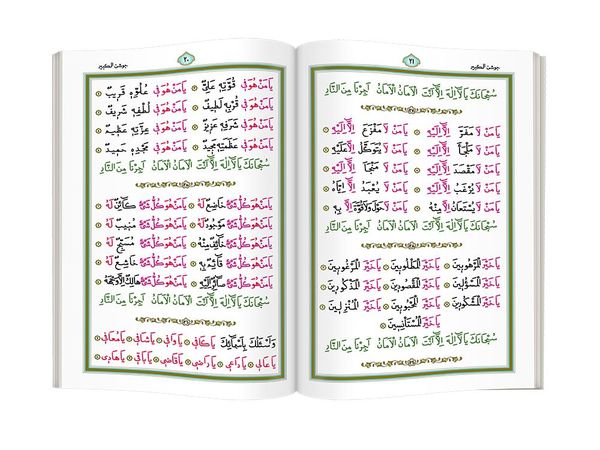 جوشن الكبير ٢٠
يَا مَنْ هُوَ فِي قُوَّتِهِ عَلِيٌّ ۞ يَا مَنْ هُوَ فِي عُلُوِّهِ قَرِيبٌ ۞
يَا مَنْ هُوَ فِي قُرْبِهِ لَطِيفٌ ۞ يَا مَنْ هُوَ فِي لُطْفِهِ شَرِيفٌ ۞
يَا مَنْ هُوَ فِي شَرَفِهِ عَزِيزٌ ۞ يَا مَنْ هُوَ فِي عِزَّتِهِ عَظِيمٌ ۞
يَا مَنْ هُوَ فِي عَظَمَتِهِ مَجِيدٌ ۞ يَا مَنْ هُوَ فِي مَجْدِهِ حَمِيدٌ ۞
سُبْحَانَكَ يَا لَا اِلٰهَ اِلَّا اَنْتَ الْاَمَانُ الْاَمَانُ اَجِرْنَا مِنَ النَّارِ
يَا مَنْ هُوَ كُلُّ شَيْءٍ خَاضِعٌ لَهُ ۞ يَا مَنْ هُوَ كُلُّ شَيْءٍ كَائِنٌ لَهُ ۞
يَا مَنْ هُوَ كُلُّ شَيْءٍ مَوْجُودٌ لَهُ ۞ يَا مَنْ هُوَ كُلُّ شَيْءٍ مُنِيبٌ لَهُ ۞
يَا مَنْ هُوَ كُلُّ شَيْءٍ خَائِفٌ مِنْهُ ۞ يَا مَنْ هُوَ كُلُّ شَيْءٍ مُسَبِّحٌ لَهُ ۞
يَا مَنْ هُوَ كُلُّ شَيْءٍ قَائِمٌ بِهِ ۞ يَا مَنْ هُوَ كُلُّ شَيْءٍ خَاشِعٌ لَهُ ۞
يَا مَنْ هُوَ كُلُّ شَيْءٍ صَائِرٌ اِلَيْهِ ۞ يَا مَنْ هُوَ كُلُّ شَيْءٍ هَالِكٌ اِلَّا وَجْهَهُ ۞
سُبْحَانَكَ يَا لَا اِلٰهَ اِلَّا اَنْتَ الْاَمَانُ الْاَمَانُ اَجِرْنَا مِنَ النَّارِ
وَاَسْئَلُكَ بِاَسْمَائِكَ يَا كَافِي ۞ يَا وَافِي ۞ يَا شَافِي ۞ يَا مُعَافِي ۞
يَا عَالِي ۞ يَا دَاعِي ۞ يَا رَاضِي ۞ يَا قَاضِي ۞ يَا بَاقِي ۞ يَا هَادِي ۞
جوشن الكبير ٢١
سُبْحَانَكَ يَا لَا اِلٰهَ اِلَّا اَنْتَ الْاَمَانُ الْاَمَانُ اَجِرْنَا مِنَ النَّارِ
يَا مَنْ لَا مَفَرَّ اِلَّا اِلَيْهِ ۞ يَا مَنْ لَا مَفْزَعَ اِلَّا اِلَيْهِ ۞
يَا مَنْ لَا مَلْجَأَ اِلَّا اِلَيْهِ ۞ يَا مَنْ لَا يُتَوَكَّلُ اِلَّا عَلَيْهِ ۞
يَا مَنْ لَا مَقْصَدَ اِلَّا اِلَيْهِ ۞ يَا مَنْ لَا مَنْجَا اِلَّا اِلَيْهِ ۞
يَا مَنْ لَا يُرْغَبُ اِلَّا اِلَيْهِ ۞ يَا مَنْ لَا يُعْبَدُ اِلَّا اِيَّاهُ ۞
يَا مَنْ لَا يُسْتَعَانُ اِلَّا مِنْهُ ۞ يَا مَنْ لَا حَوْلَ وَلَا قُوَّةَ اِلَّا بِهِ ۞
سُبْحَانَكَ يَا لَا اِلٰهَ اِلَّا اَنْتَ الْاَمَانُ الْاَمَانُ اَجِرْنَا مِنَ النَّارِ
يَا خَيْرَ الْمَرْهُوبِينَ ۞ يَا خَيْرَ الْمَطْلُوبِينَ ۞ يَا خَيْرَ الْمَرْغُوبِينَ ۞
يَا خَيْرَ الْمَسْئُولِينَ ۞ يَا خَيْرَ الْمَقْصُودِينَ ۞ يَا خَيْرَ الْمَذْكُورِينَ ۞
يَا خَيْرَ الْمَشْكُورِينَ ۞ يَا خَيْرَ الْمَحْبُوبِينَ ۞ يَا خَيْرَ الْمُنْزِلِينَ ۞
يَا خَيْرَ الْمُسْتَأْنِسِينَ ۞
سُبْحَانَكَ يَا لَا اِلٰهَ اِلَّا اَنْتَ الْاَمَانُ الْاَمَانُ اَجِرْنَا مِنَ النَّارِ